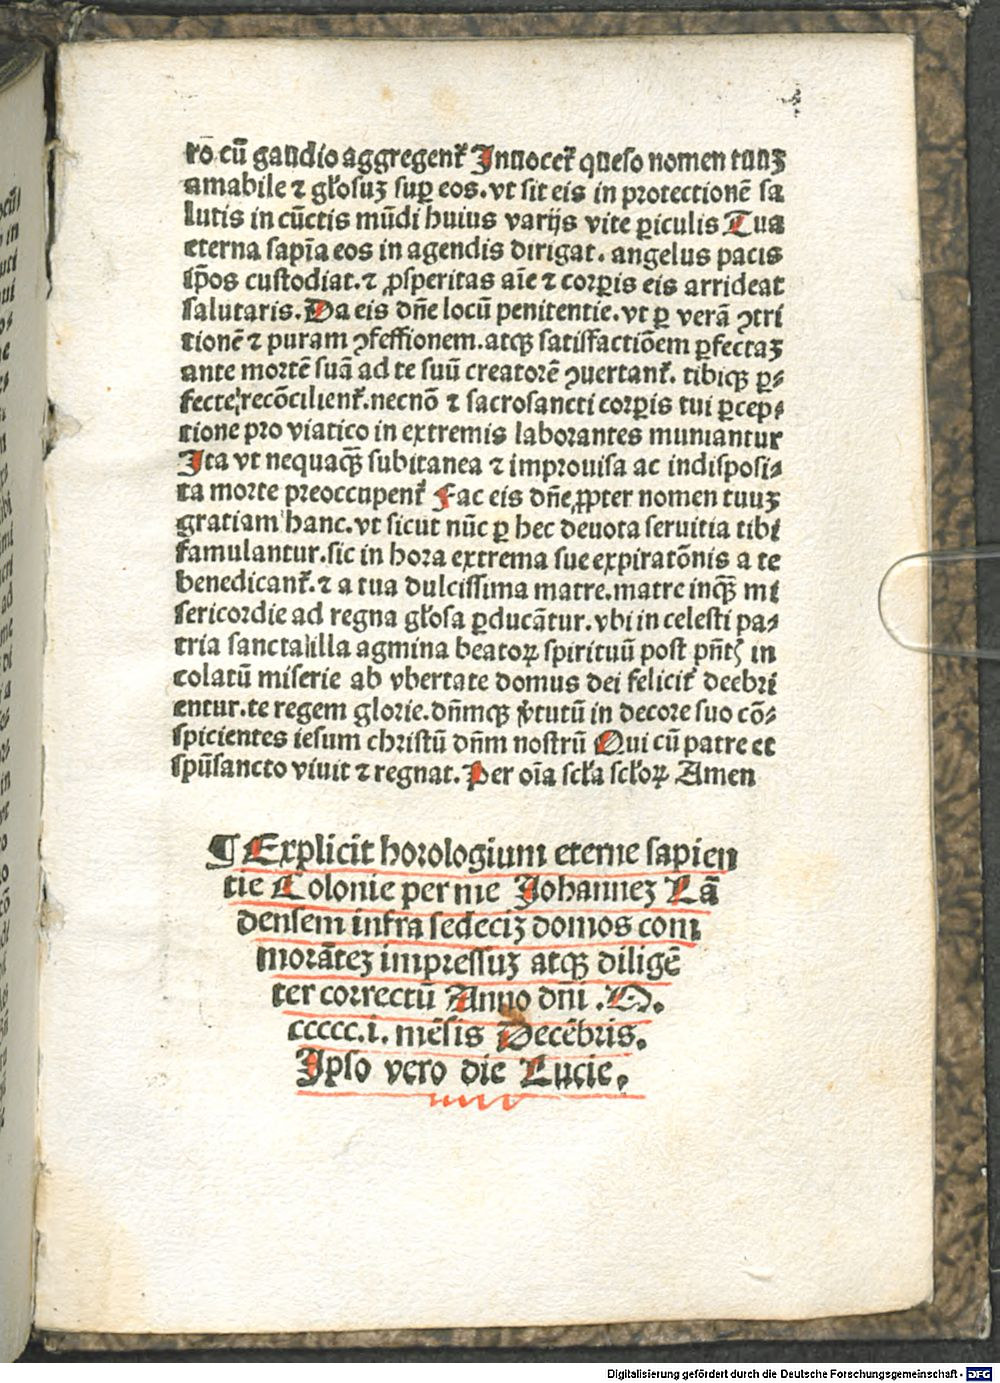 ro cū gaudio aggregent᷑ Inuocet᷑ queso nomen tuuȝ
amabile ⁊ gło­suȝ sup̲ eos. vt sit eis in protectionē sa
lutis in cūctis mūdi huius varijs vite p̲iculis Tua
eterna sapīa eos in agendis dirigat. angelus pacis
ip̄os custodiat. ⁊ ꝓsperitas aīe ⁊ corp̲is eis arrideat
salutaris. Da eis dn̄e locū penitentie. vt p̲ verā ꝯtri
tionē ⁊ puram ꝯfessionem. atqꝫ satisfactiōem p̲fectaȝ
ante mortē suā ad te suū creatorē ꝯuertant᷑. tibiqꝫ p̲⸗
fecte recōcilient᷑. necnō ⁊ sacrosancti corp̲is tui p̲cep⸗
tione pro viatico in extremis laborantes muniantur
Ita vt nequaqꝫ̄ subitanea ⁊ improuisa ac indisposi⸗
ta morte preoccupent᷑ Fac eis dn̄e ꝓpter nomen tuuȝ
gratiam hanc. vt sicut nūc p̲ hec deuota seruitia tibi
famulantur. sic in hora extrema sue expiratōnis a te
benedicant᷑. ⁊ a tua dulcissima matre. matre inqꝫ̄ mi
sericordie ad regna głosa p̲ducātur. vbi in celesti pa⸗
tria sancta illa agmina beatoꝝ spirituū post pn̄tꝭ in
colatū miserie ab vbertate domus dei felicit᷑ deebri
entur. te regem glorie. dn̄mqꝫ v̾tutū in decore suo cō⸗
spicientes iesum christū dn̄m nostrū Qui cū patre et
spūsancto viuit ⁊ regnat. Per oīa scła scłoꝝ Amen
¶ Explicit horologium eterne sapien
tie Colonie per me Johannez Lā
densem infra sedecīȝ domos com
morātez impressuȝ atqꝫ diligē
ter correctū Anno dn̄i .M.
ccccc.i. mēsis Decēbris.
Ipso vero die Lucie.
Digitalisierung gefördert durch die Deutsche Forschungsgemeinschaft - DFG